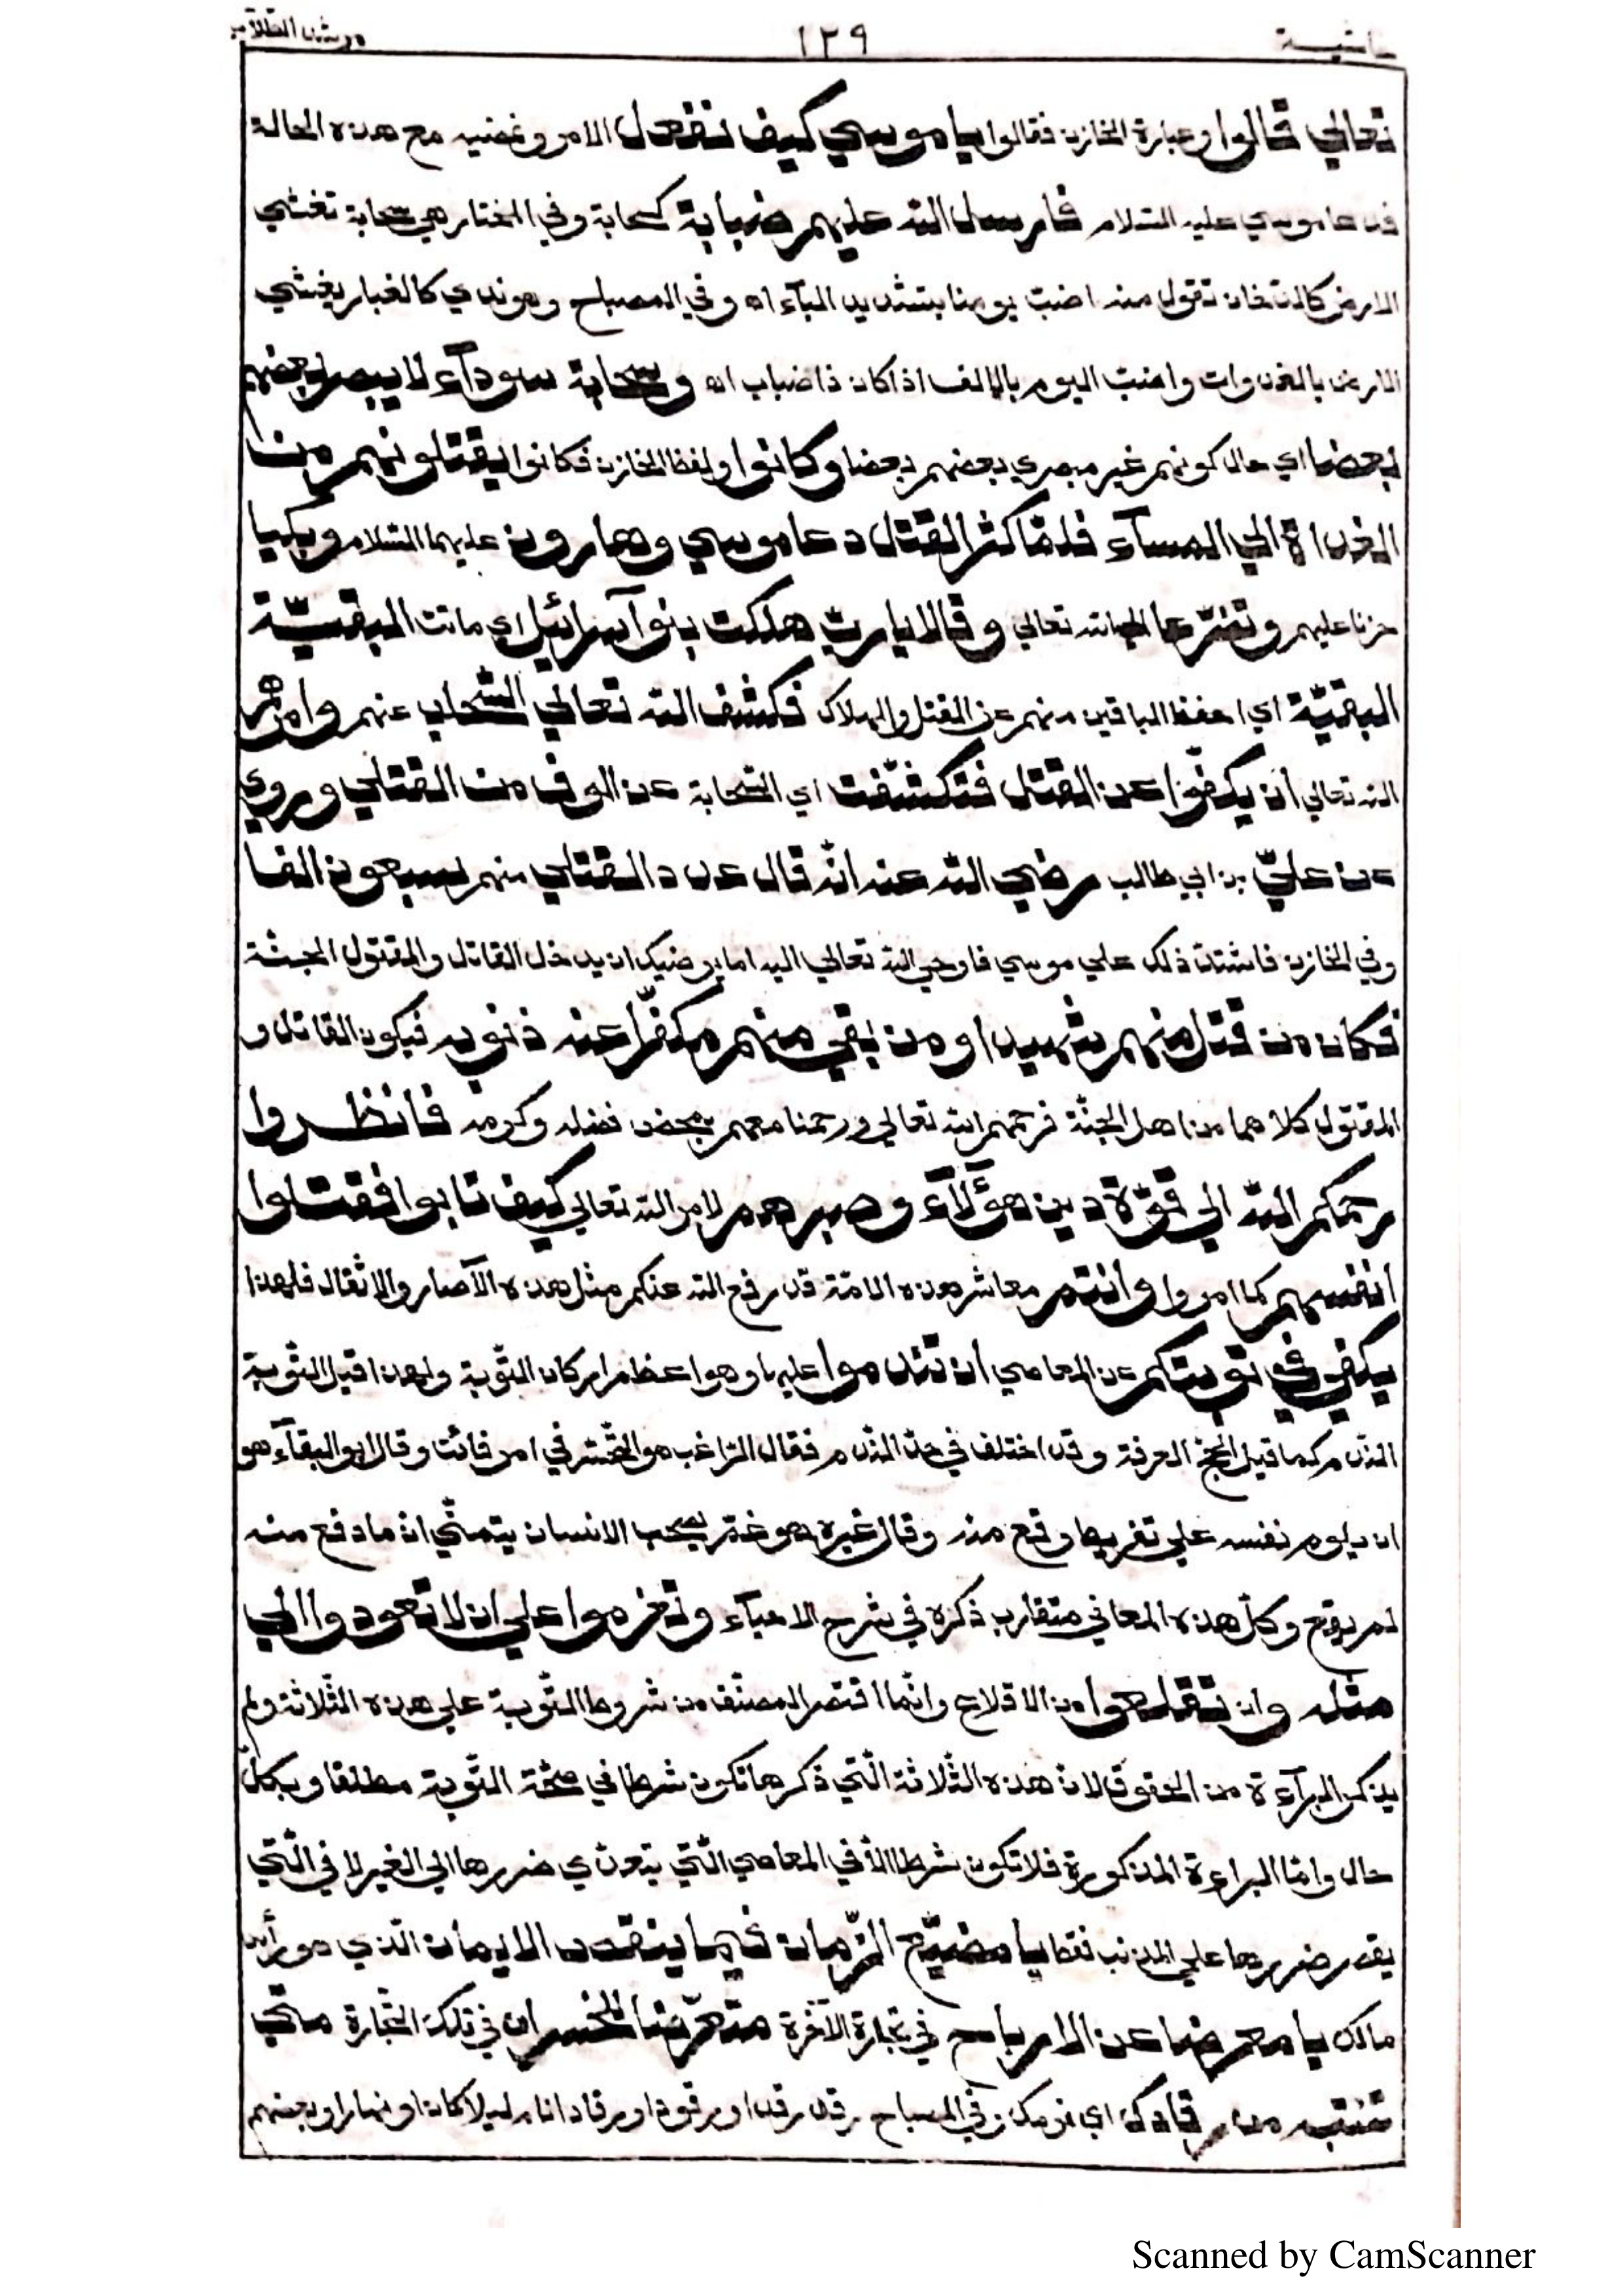 حاشية ١٣٩ مرشد الطلاب
تعالي قالوا وعبارة الخازن فقالوا يا موسي كيف نفعل الامر ونمضيه مع هذه الحالة
فدعا موسي عليه السّلام فارسل الله عليهم ضبابة كسحابة وفي المختار هي سحابة تغشي
الارض كالدّخان تقول منه اضبّ يومنا بتشديد البآء اه وفي المصباح وهو ندي كالغبار يغشي
الارض بالغدوات واضبّ اليوم بالالف اذا كان ذا ضباب اه وسحابة سودآء لا يبصر بعضهم
بعضا اي حال كونهم غير مبصري بعضهم بعضا وكانوا ولفظ الخازن فكانوا يقتلونهم من
الغداة الي المسآء فلمّا كثر القتل دعا موسي وهارون عليهما السّلام وبكيا
حزنا عليهم وتضرّعا الي الله تعالي وقالا يا ربّ هلكت بنوآ اسرائيل اي ماتت البقيّة
البقيّة اي احفظ الباقين منهم عن القتل والهلاك فكشف الله تعالي السّحاب عنهم وامرهم
الله تعالي ان يكفّوا عن القتل فتكشّفت اي السّحابة عن الوف من القتلي وروي
عن عليّ بن ابي طالب رضي الله عنه انّه قال عدد القتلي منهم سبعون الفا
وفي الخازن فاشتدّ ذلك علي موسي فاوحي الله تعالي اليه اما يرضيك ان يدخل القاتل والمقتول الجنّة
فكان من قتل منهم شهيدا ومن بقي منهم مكفّرا عنه ذنوبه فيكون القاتل و
المقتول كلاهما من اهل الجنّة فرحمهم الله تعالي ورحمنا معهم بمحض فضله وكرمه فانظروا
رحمكم الله الي قوّة دين هؤلآء وصبرهم لامر الله تعالي كيف تابوا فقتلوا
انفسهم كما امروا وانتم معاشر هذه الامّة قد رفع الله عنكم مثل هذه الآصار والاثقال فلهذا
يكفي في توبتكم عن المعاصي ان تندموا عليها وهو اعظم اركان التّوبة ولهذا قيل التّوبة
النّدم كما قيل الحجّ العرفة وقد اختلف في حدّ النّدم فقال الرّاغب هو التّحسّر في امر فائت وقال ابو البقآء هو
ان يلوم نفسه علي تفريط وقع منه وقال غيره هو غمّ يصحب الانسان يتمنّي انّ ما وقع منه
لم يقع وكلّ هذه المعاني متقارب ذكره في شرح الاحيآء وتعزموا علي ان لا تعودوا الي
مثله وان تقلعوا من الاقلاع وانّما اقتصر المصنّف من شروط التّوبة علي هذه الثّلاثة ولم
يذكر البرآءة من الحقوق لانّ هذه الثّلاثة الّتي ذكرها تكون شرطا في صحّة التّوبة مطلقا وبكلّ
حال وامّا البراءة المذكورة فلا تكون شرطا الّا في المعاصي الّتي يتعدّي ضررها الي الغير لا في الّتي
يقصر ضررها علي المذنب فقط يا مضيّع الزّمان فيما ينقص الايمان الّذي هو رأس
مالك يا معرضا عن الارباح في تجارة الآخرة متعرّضا للخسران في تلك التّجارة متي
تنتبه من رقادك اي نومك وفي المصباح رقد رقدا ورقودا ورقادا نام ليلا كان او نهارا وبعضهم
Scanned by CamScanner